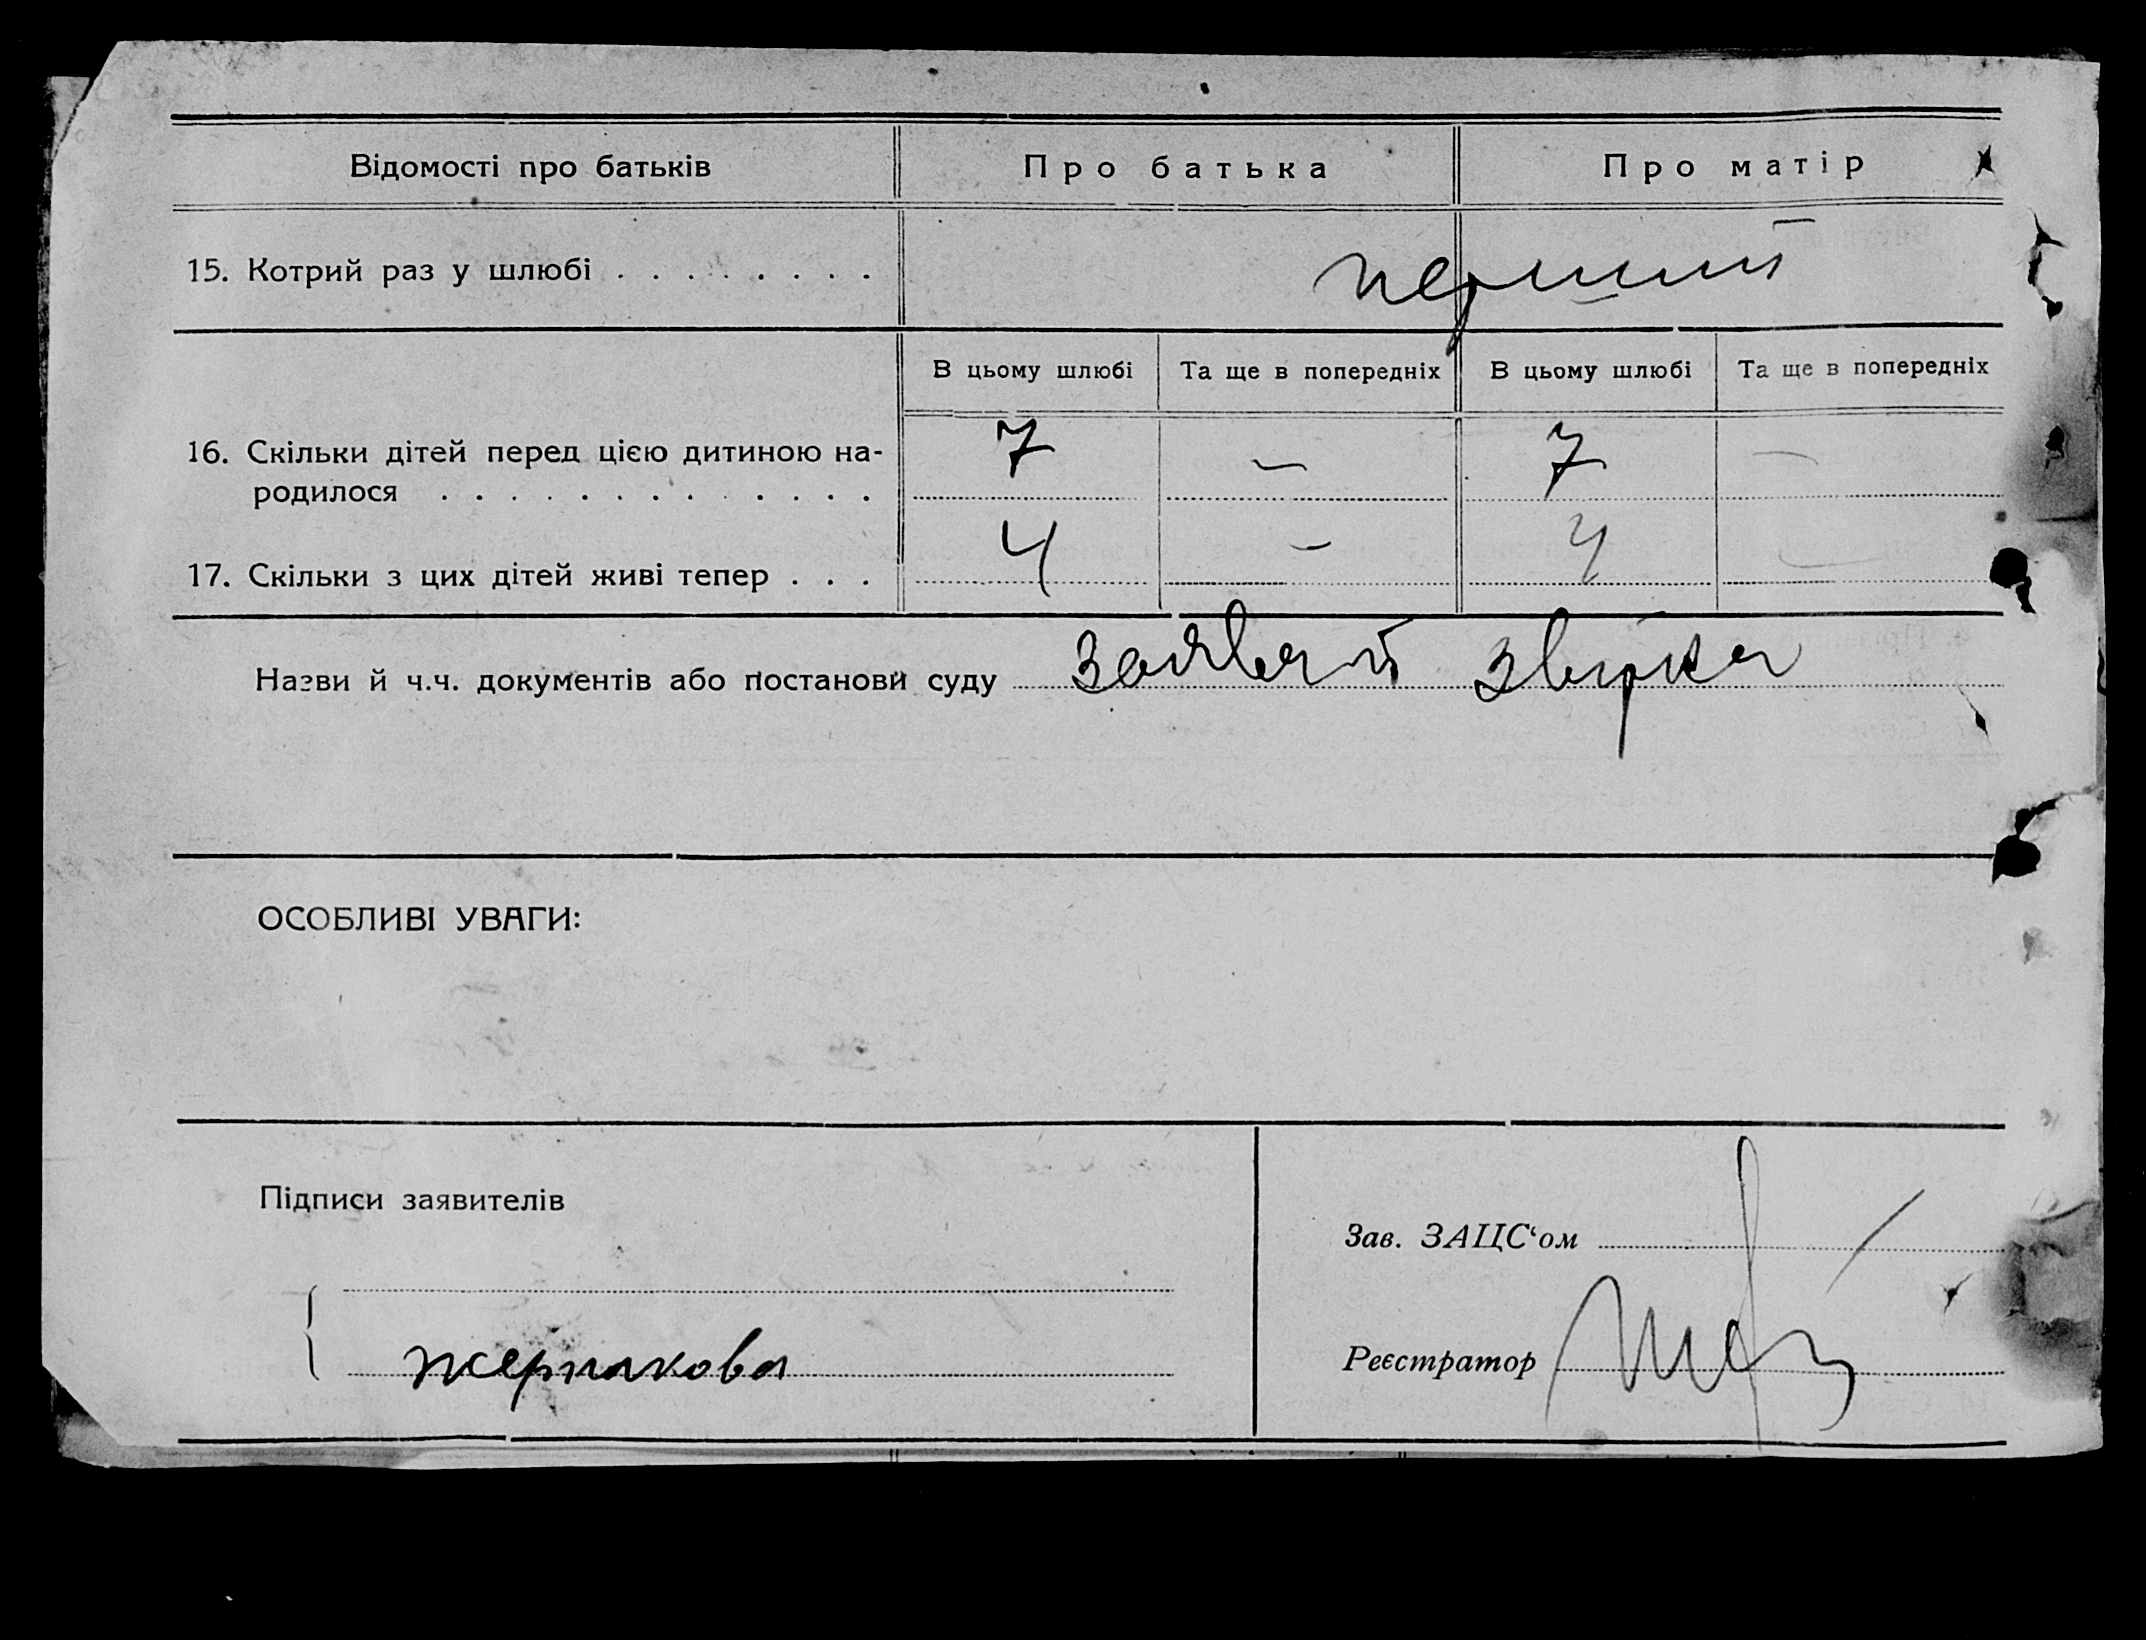 Відомості про батьків Про батька Про матір
15. Котрий раз у шлюбі . . . . . . . . перший
В цьому шлюбі Та ще в попередніх В цьому шлюбі Та ще в попередніх
16. Скільки дітей перед цією дитиною на- 7 — 7 —
родилося . . . . . . . . . . . . .
17. Скільки з цих дітей живі тепер . . . 4 — 4 —
Назви й ч.ч. документів або постанови суду
ОСОБЛИВІ УВАГИ:
Підписи заявителів
Зав. ЗАЦС‘ом
Реєстратор